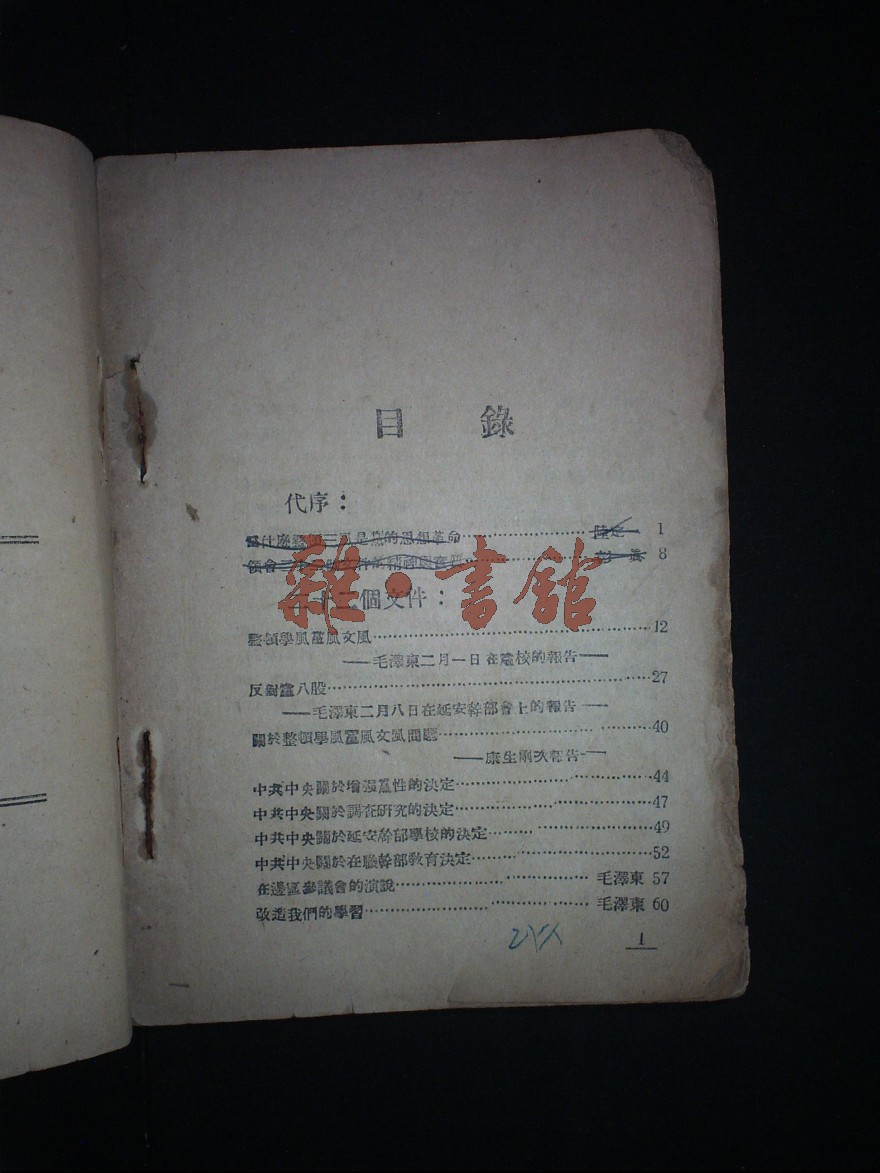 目 錄
代序：
爲什麽整頓三風是黨的思想革命 1
領會 8
二十二個文件：
整頓學風黨風文風 12
——毛澤東二月一日在黨校的報告——
反對黨八股 27
——毛澤東二月八日在延安幹部會上的報告——
關於整頓學風黨風文風問題 40
——康生兩次報告——
中共中央關於增强黨性的決定 44
中共中央關於調查研究的決定 47
中共中央關於延安幹部學校的決定 49
中共中央關於在職幹部教育決定 52
在邊區參議會的演說 毛澤東 57
改造我們的學習 毛澤東 60
1
雜·書館